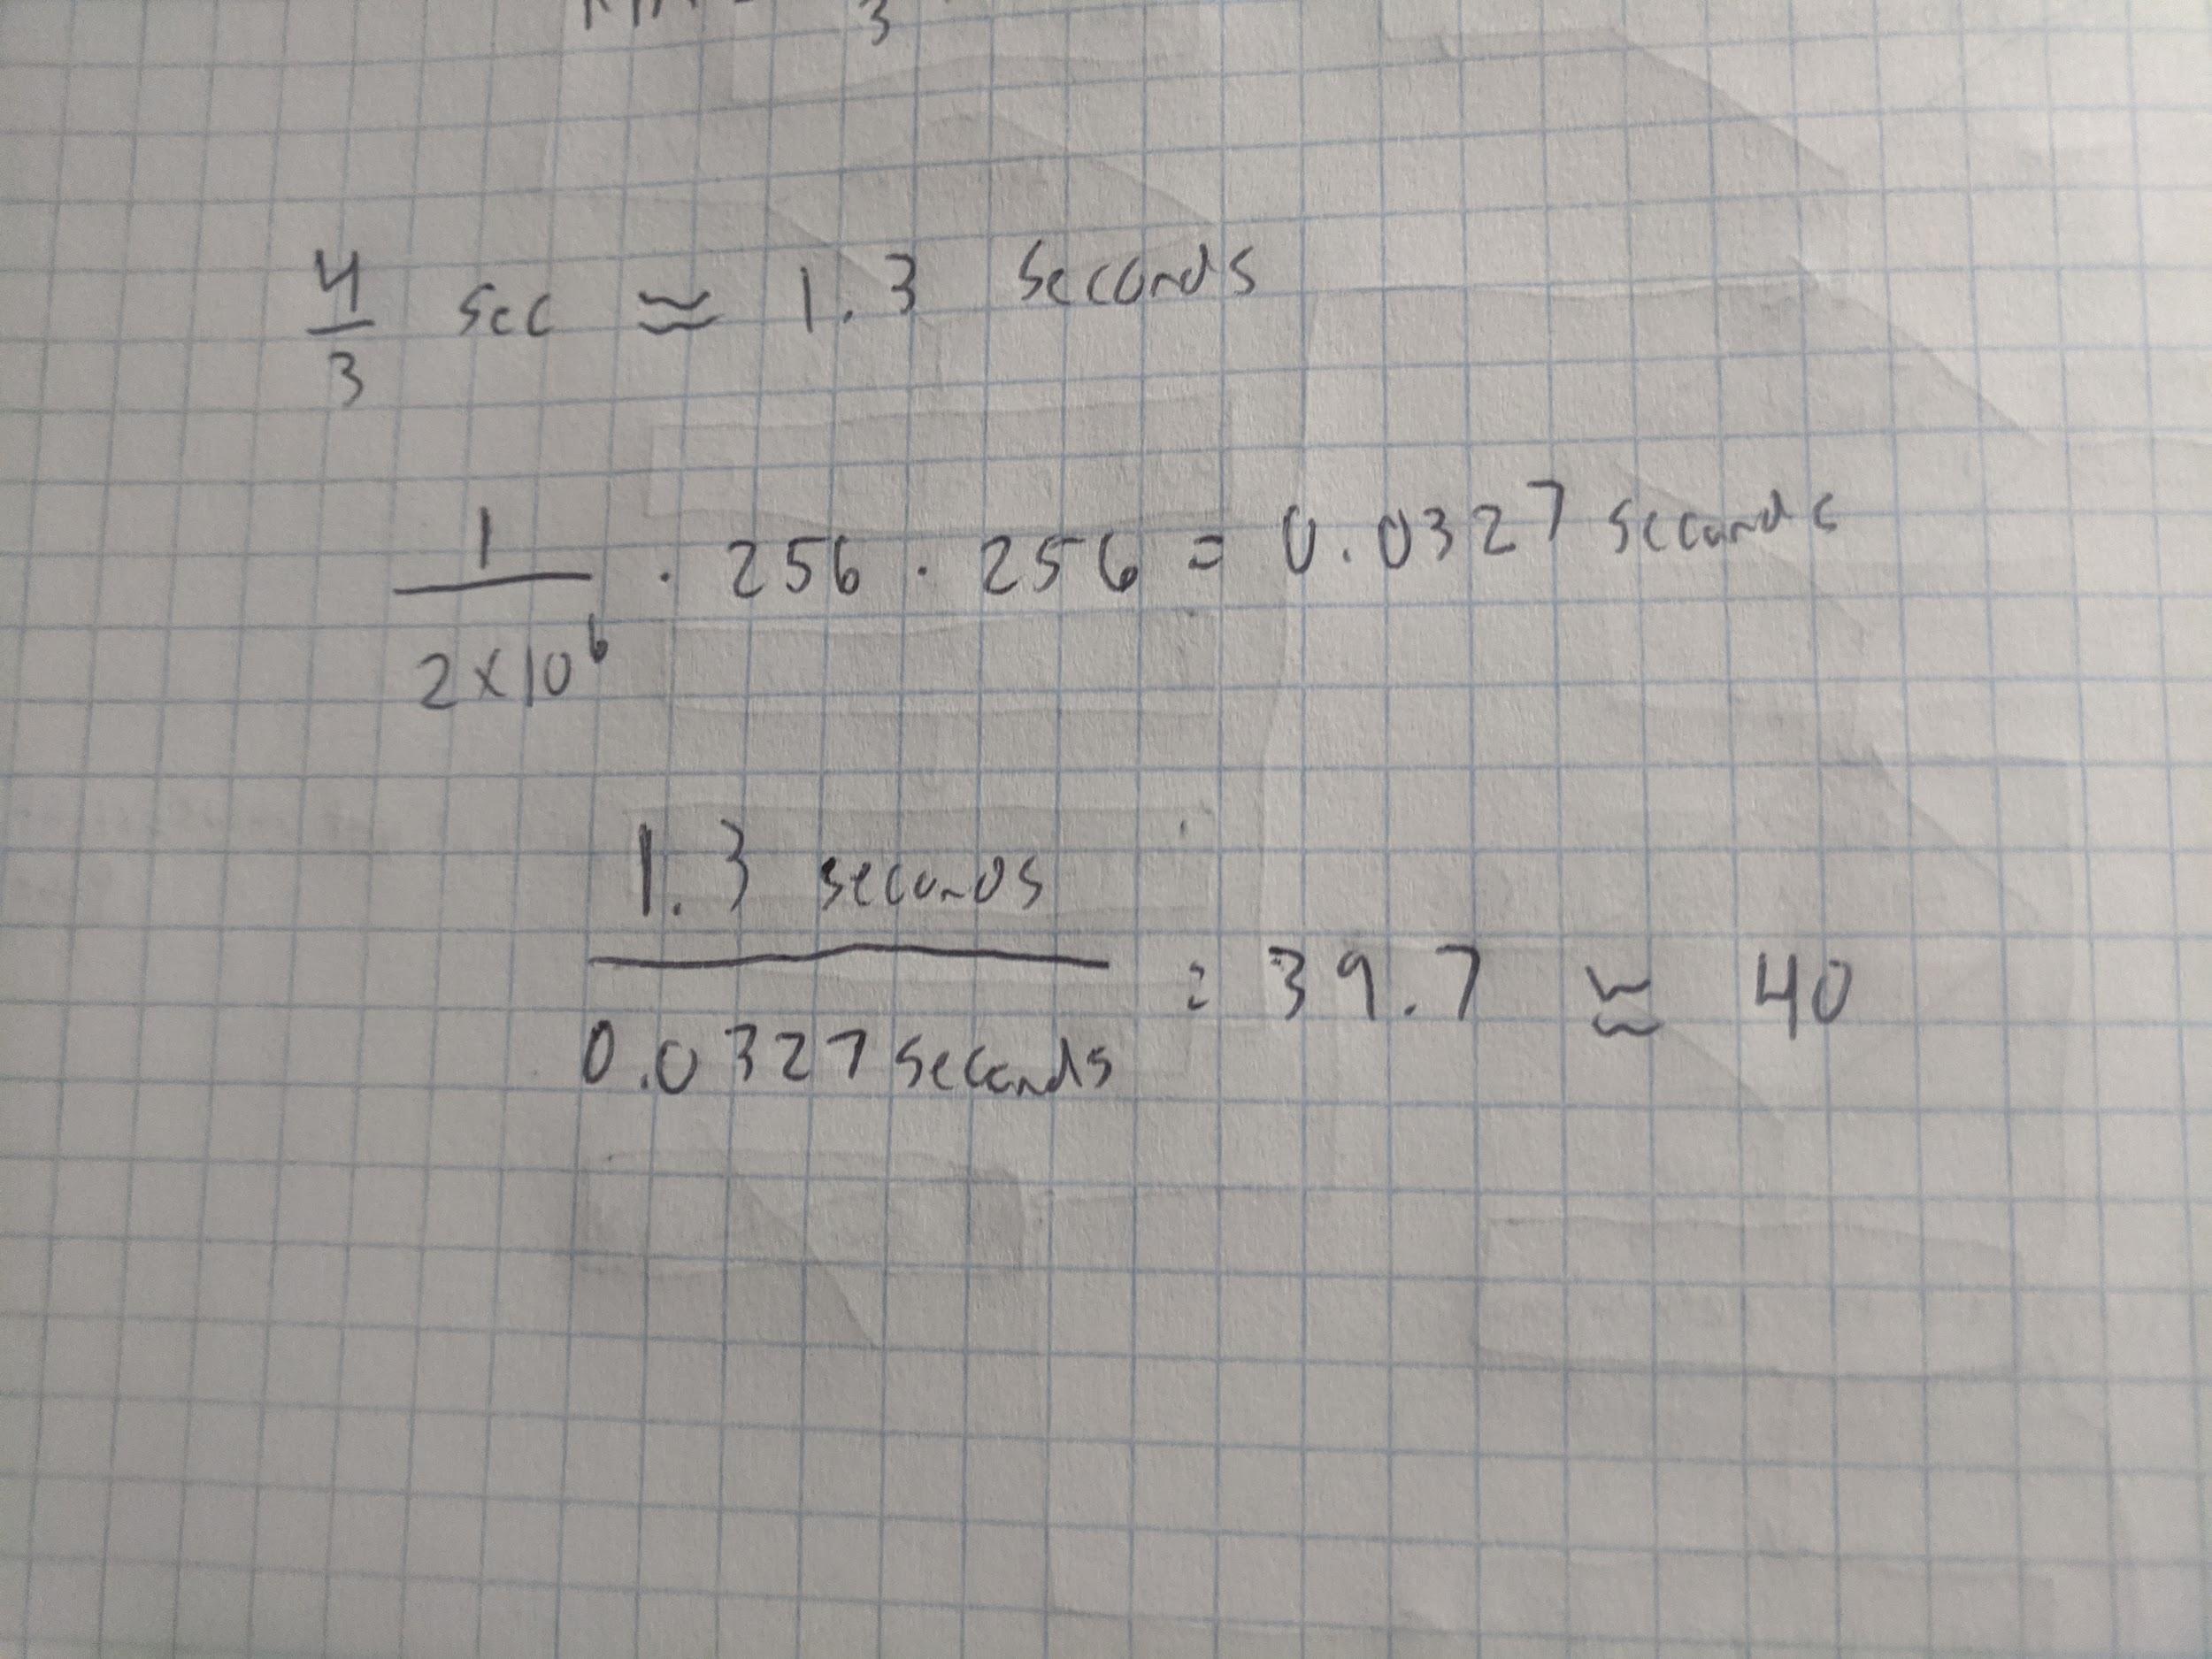 3
4/3 sec ≈ 1.3 seconds
1/(2×10⁶) · 256 · 256 = 0.0327 seconds
1.3 seconds
0.0327 seconds = 39.7 ≈ 40